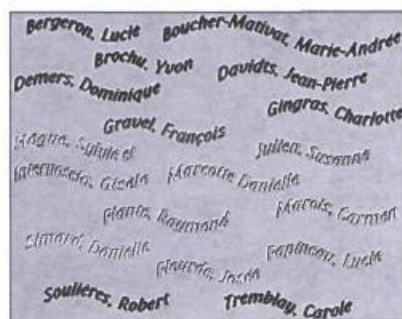 Bergeron, Lucie
Boucher-Mativat, Marie-Andrée
Brochu, Yvon
Davidts, Jean-Pierre
Demers, Dominique
Gingras, Charlotte
Gravel, François
Högue, Sylvie et
Internoscia, Gisèle
Julien, Susanne
Marcotte, Danielle
Plante, Raymond
Marois, Carmen
Simard, Danielle
Papineau, Lucie
Plourde, Josée
Soulières, Robert
Tremblay, Carole